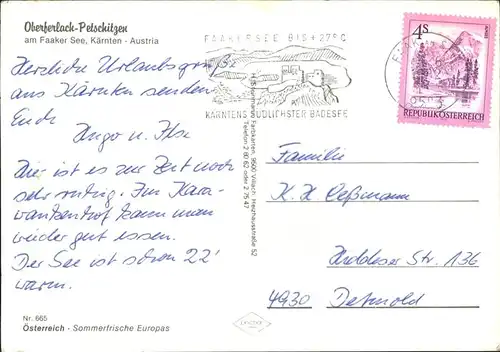 Oberferlach-Petschitzen
am Faaker See, Kärnten - Austria
FAAKERSEE BIS +27°C
KÄRNTENS SÜDLICHSTER BADESEE
4S
REPUBLIK ÖSTERREICH
Herzliche Urlaubsgrüße
aus Kärnten senden
Euch
Hugo u. Ilse
Hier ist es zur Zeit noch
sehr ruhig. Im Kara-
wankenhof kann man
wieder gut essen.
Der See ist schon 22°
warm.
Familie
K. H. Leßmann
Str. 136
4930 Detmold
9500 Villach
Telefon 2 80 62 oder 2 75 47
Nr. 665
Österreich - Sommerfrische Europas